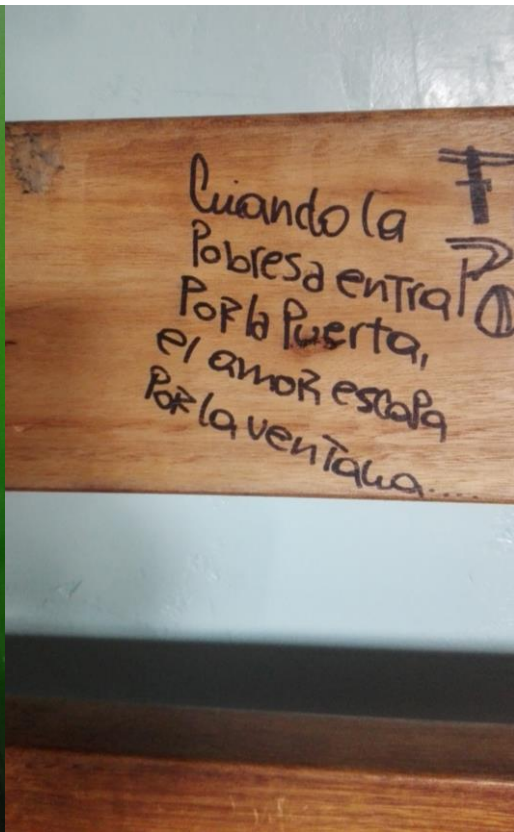 Cuando la
Pobresa entra
Por la Puerta,
el amor escapa
Por la ventana....